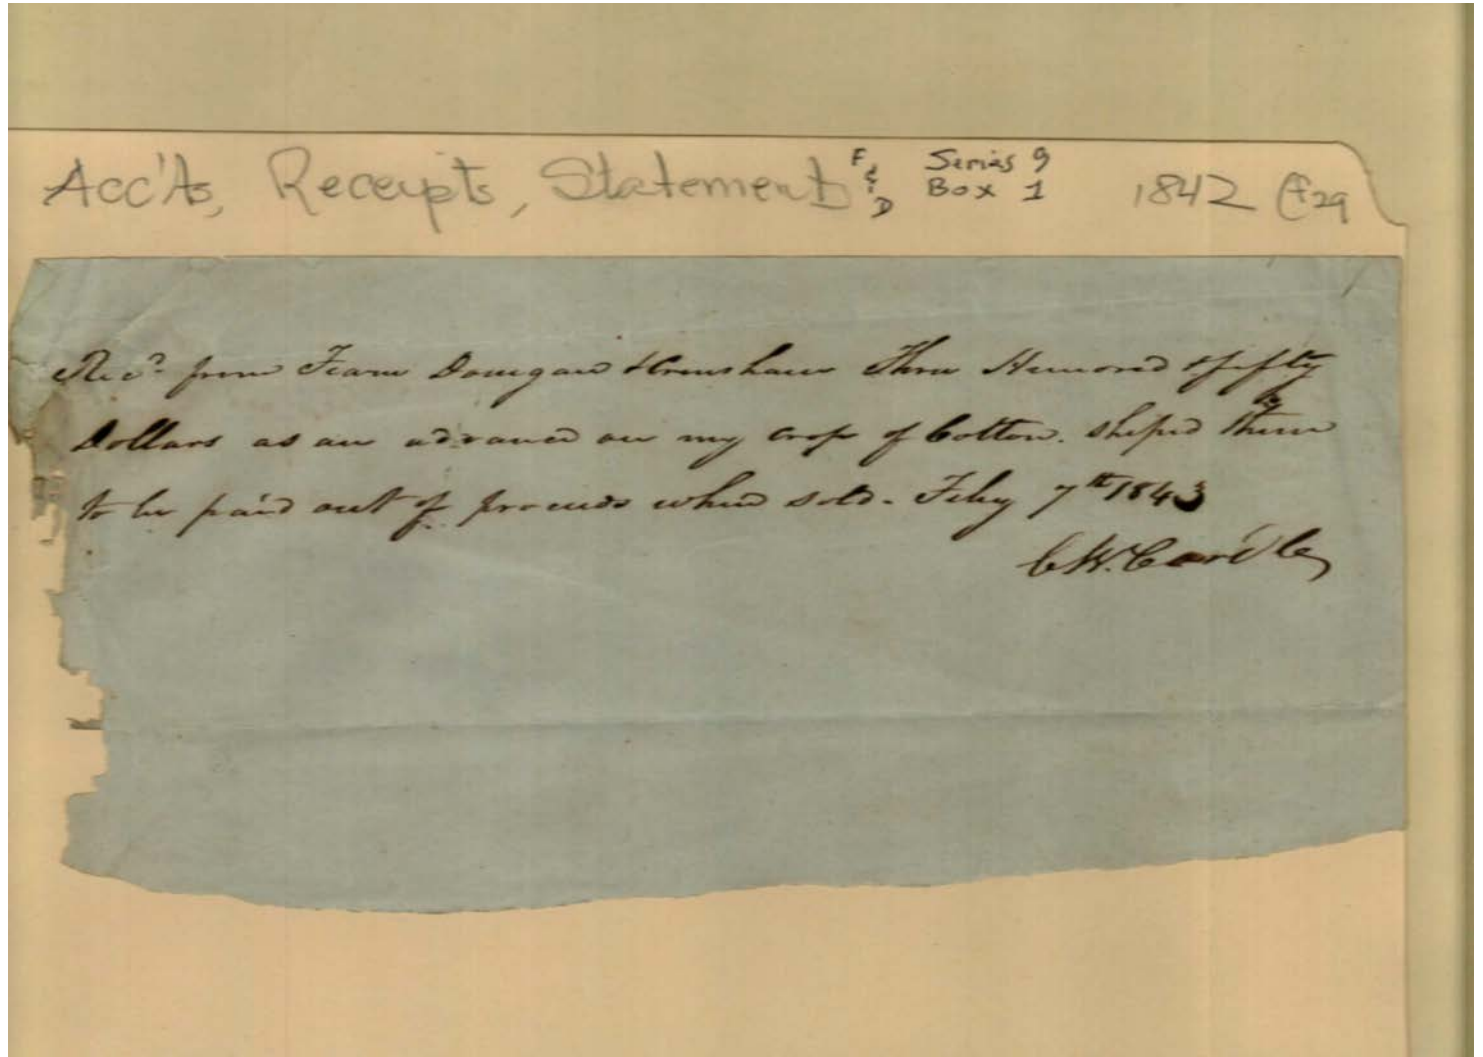 Acc'ts, Receipts, Statements F & D Series 9 Box 1 1842 (f29
Rec.d from Fearn Donegan & Crenshaw Three Hundred & fifty
Dollars as an advance on my crop of Cotton. shiped by them
to be paid out of proceeds when sold. Feby 7th 1843
C W.